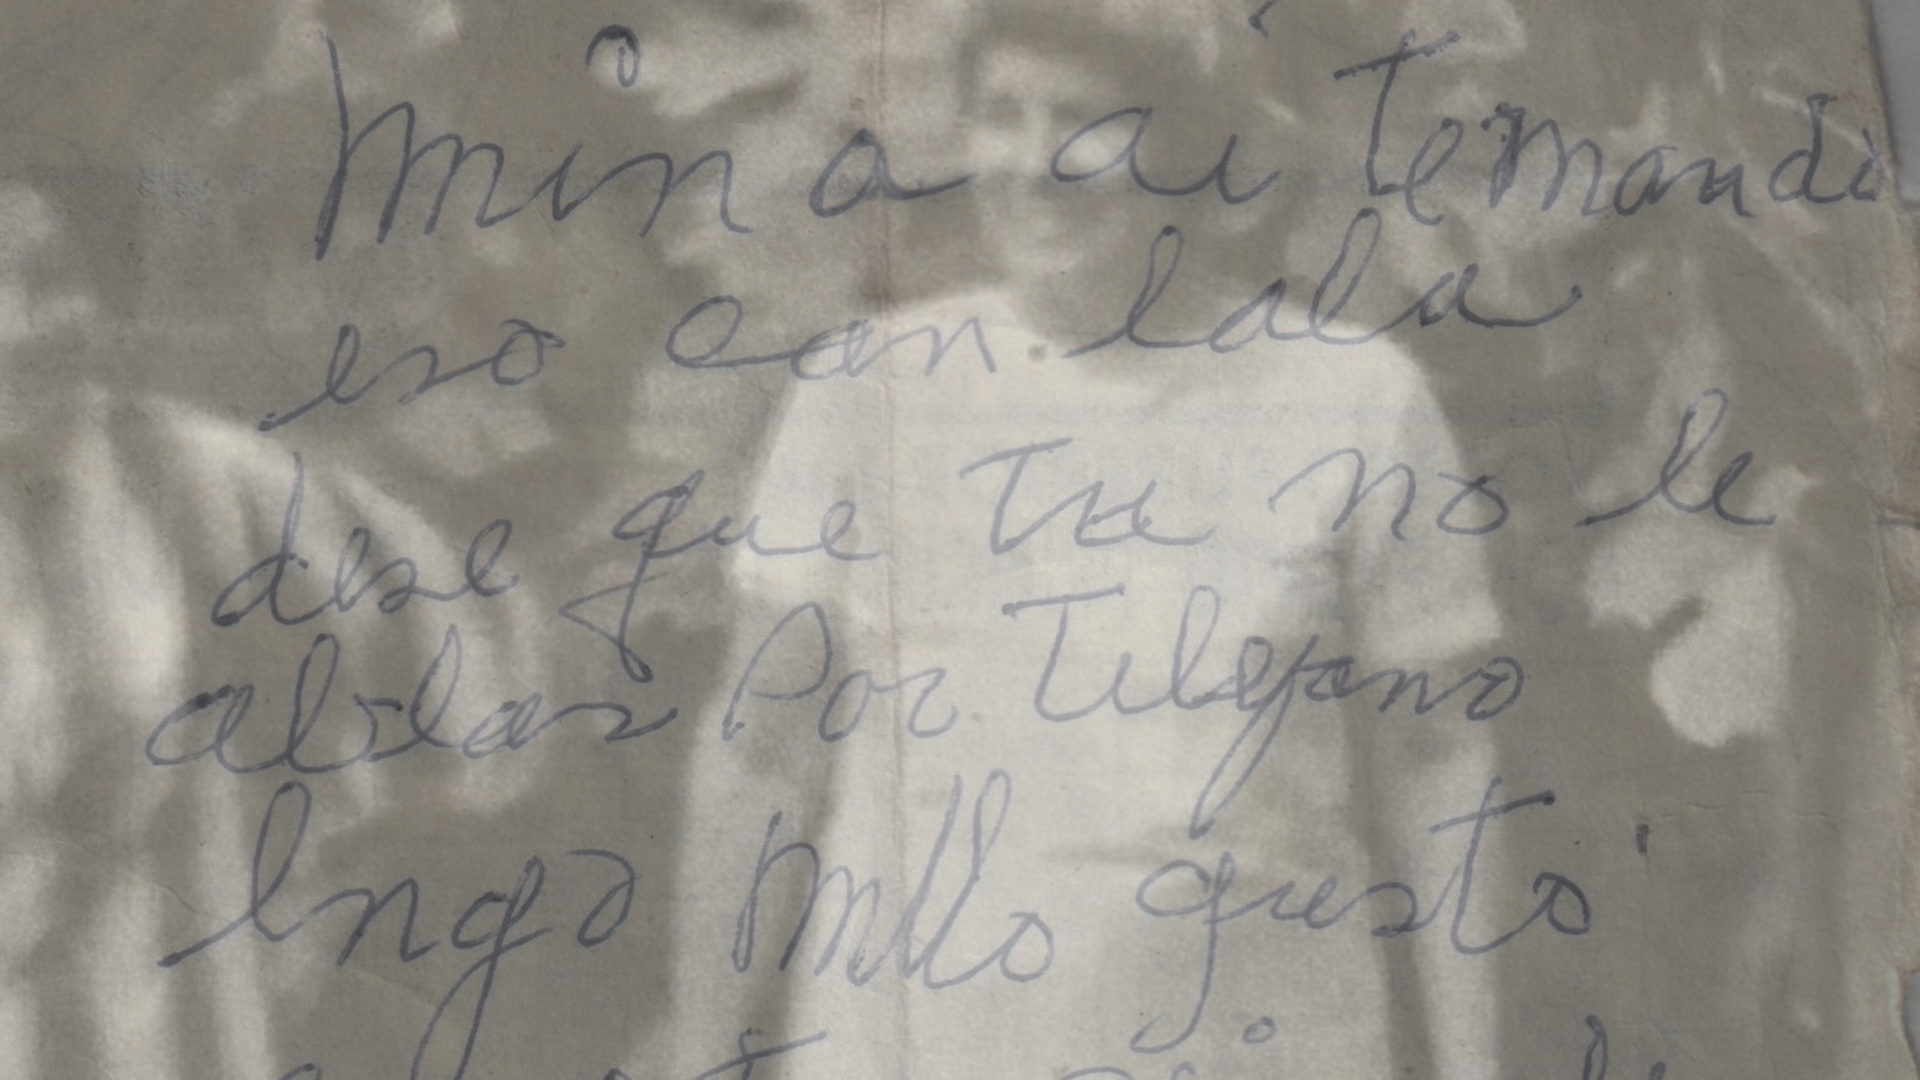 Mina ai te mando
eso can lala
dise que tu no le
ablas Por Telefono
gusto